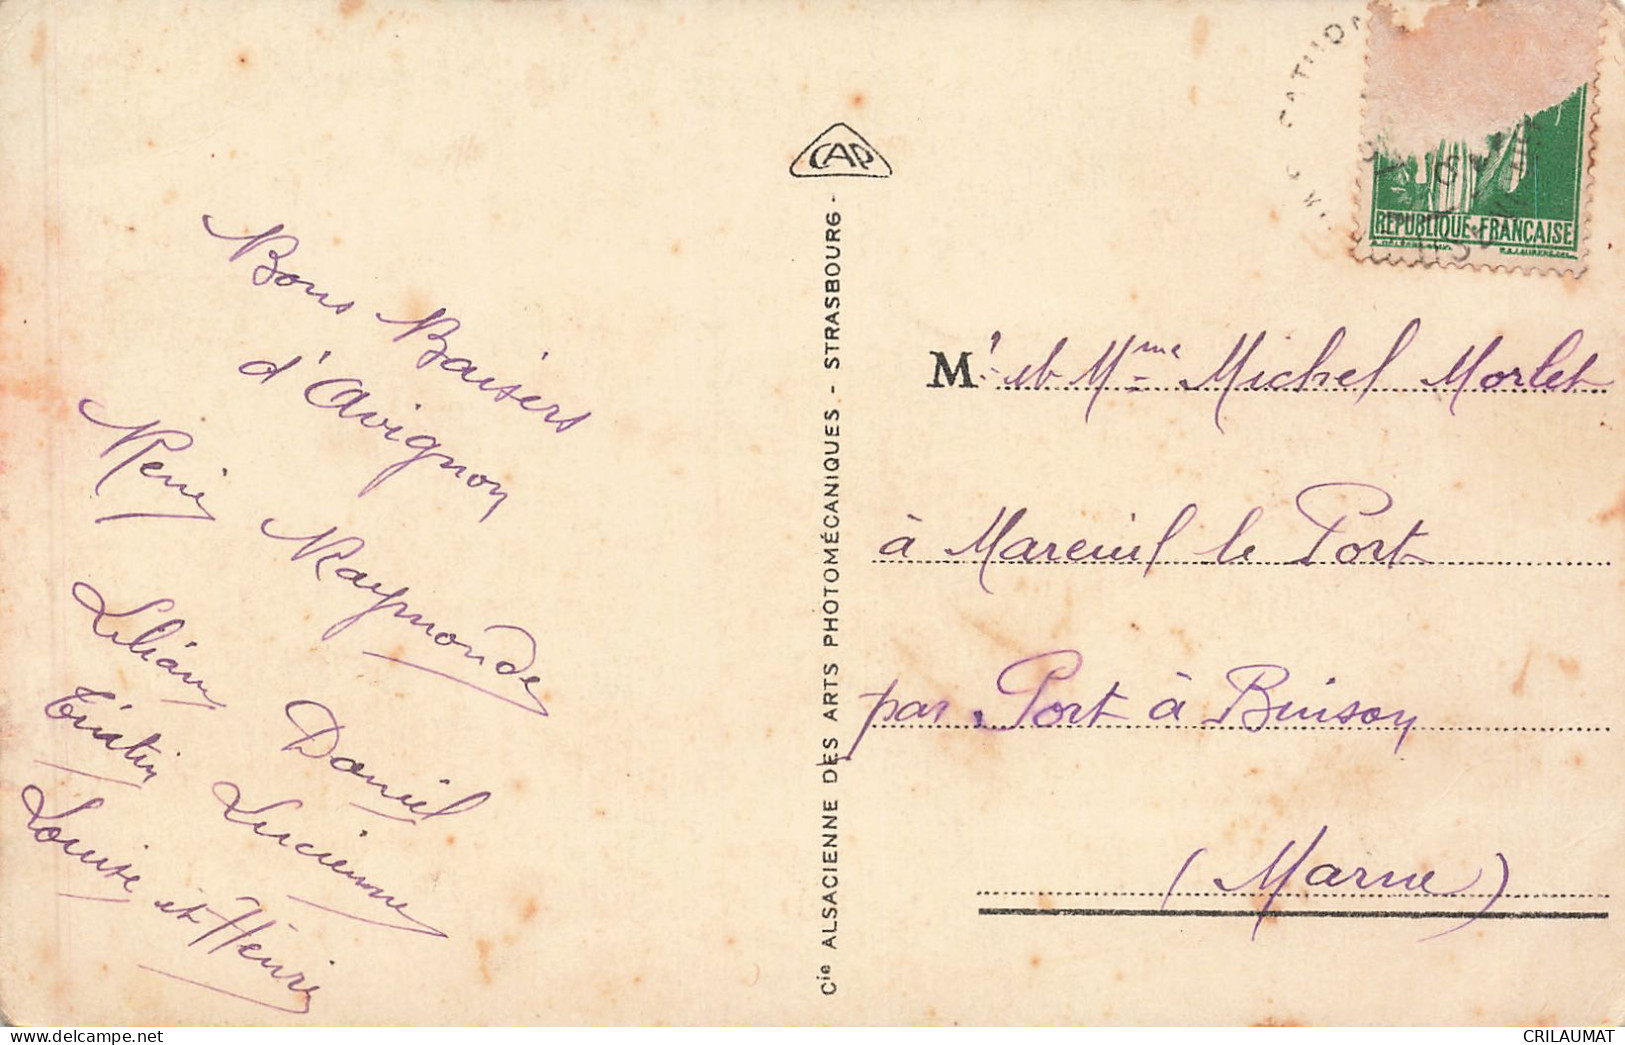 Bons Baisers
d'Avignon
René Raymonde
Liliân Daniel
Titin Lucienne
Louise et Henri
CAP
Cie ALSACIENNE DES ARTS PHOTOMÉCANIQUES - STRASBOURG -
REPUBLIQUE-FRANÇAISE
Mr et Mme Michel Morlet
à Mareuil le Port
par Port à Binson
(Marne)
CRILAUMAT